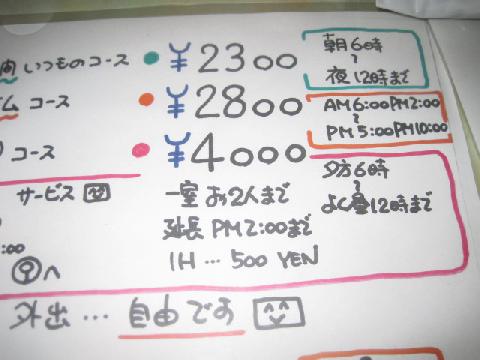 いつものコース ● ¥2300 朝6時
〜
夜12時まで
ム コース ● ¥2800 AM6:00PM2:00
〜
PM5:00PM10:00
コース ● ¥4000 夕方6時
〜
よく昼12時まで
サービス 一室お2人まで
延長PM2:00まで
:00
へ 1H…500 YEN
外出…自由です